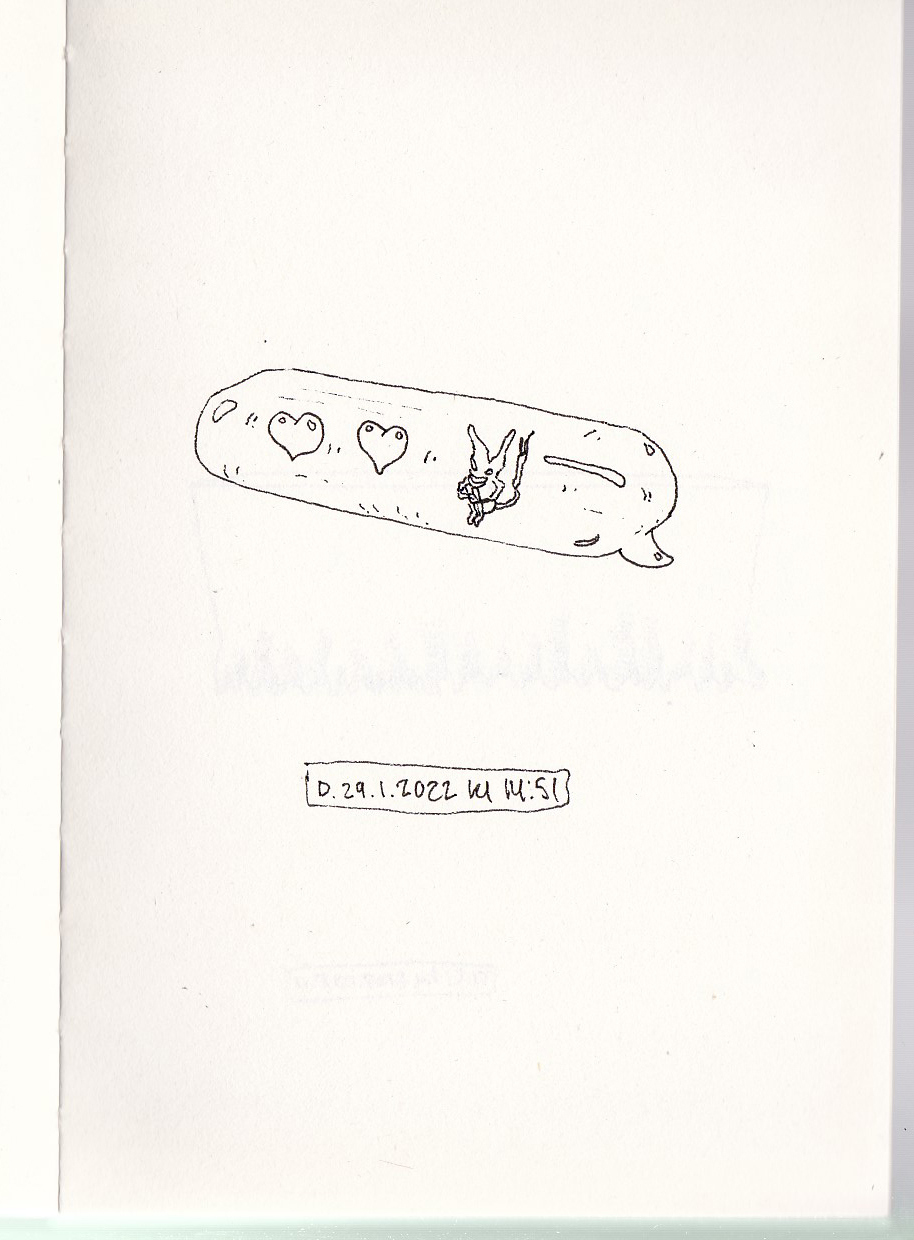 D. 29.1.2022 kl 14:51